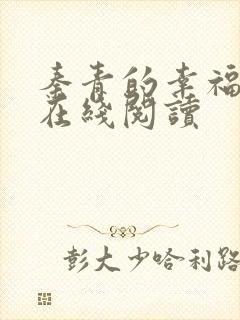 秦青的幸福
在綫閱讀
彭大少哈利路